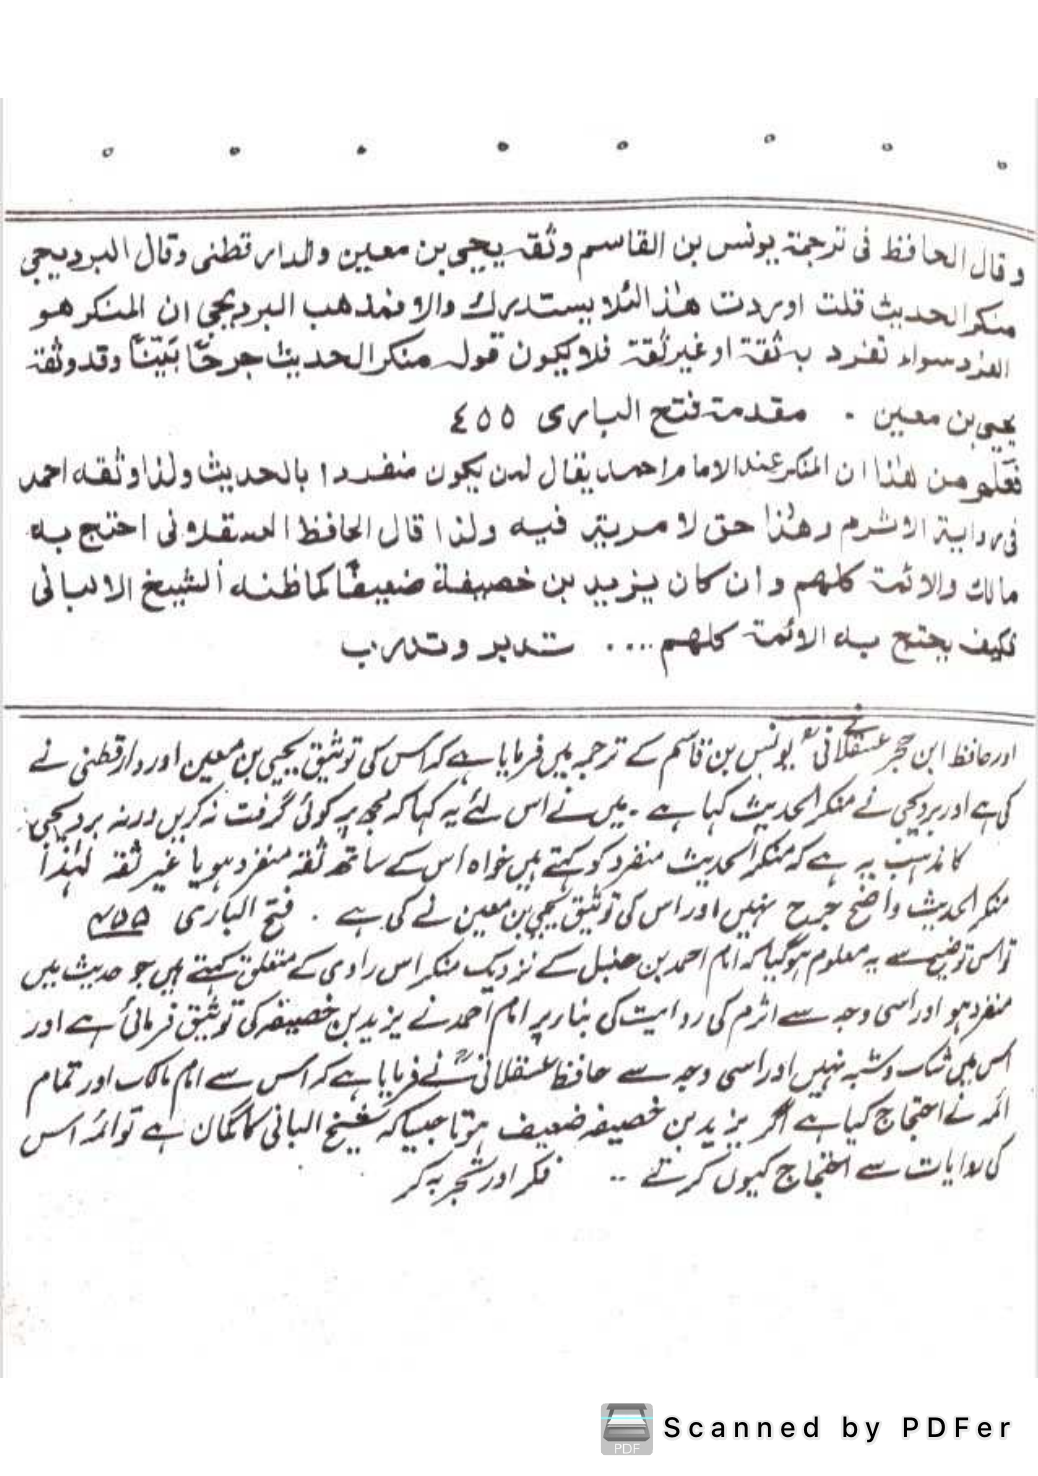 وقال الحافظ فی ترجمة یونس بن القاسم وثقه یحیی بن معین والدارقطنی وقال البردیجی
منکر الحدیث قلت اوردت هذا لئلا یستدرك والا فمذهب البردیجی ان المنکر هو
الفرد سواء تفرد به ثقة او غیر ثقة فلا یکون قوله منکر الحدیث جرحًا بَیّنًا وقد وثقه
یحیی بن معین . مقدمة فتح الباری ٤٥٥
فَعَلم من هذا ان المنکر عند الامام احمد یقال لمن یکون منفردا بالحدیث ولذا وثقه احمد
فی روایة الاثرم وهذا حق لا مریة فیه ولذا قال الحافظ العسقلانی احتج به
مالك والائمة کلهم وان کان یزید بن خصیفة ضعیفًا کما ظنه الشیخ الالبانی
فکیف یحتج به الائمة کلهم .... تدبر وتدرب
اور حافظ ابن حجر عسقلانیؒ نے یونس بن قاسم کے ترجمہ میں فرمایا ہے کہ اس کی توثیق یحیی بن معین اور دارقطنی نے
کی ہے اور بردیجی نے منکر الحدیث کہا ہے ۔ میں نے اس لئے یہ کہا کہ مجھ پر کوئی گرفت نہ کریں ورنہ بردیجی
کا مذہب یہ ہے کہ منکر الحدیث منفرد کو کہتے ہیں خواہ اس کے ساتھ ثقہ منفرد ہو یا غیر ثقہ لہٰذا
منکر الحدیث واضح جرح نہیں اور اس کی توثیق یحیی بن معین نے کی ہے ۔ فتح الباری ۴۵۵
تو اس توضیح سے یہ معلوم ہوگیا کہ امام احمد بن حنبل کے نزدیک منکر اس راوی کے متعلق کہتے ہیں جو حدیث میں
منفرد ہو اور اسی وجہ سے اثرم کی روایت کی بناء پر امام احمد نے یزید بن خصیفہ کی توثیق فرمائی ہے اور
اس میں شک و شبہ نہیں اور اسی وجہ سے حافظ عسقلانیؒ نے فرمایا ہے کہ اس سے امام مالک اور تمام
ائمہ نے احتجاج کیا ہے اگر یزید بن خصیفہ ضعیف ہوتا جیسا کہ شیخ البانی کا گمان ہے تو ائمہ اس
کی روایات سے احتجاج کیوں کرتے .. فکر اور تجربہ کر
Scanned by PDFer